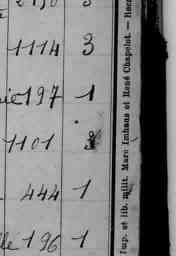 1114 3
197 1
1101 3
444 1
196 1
Imp. et lib. milit. Marc Imhaus et René Chapelot. —